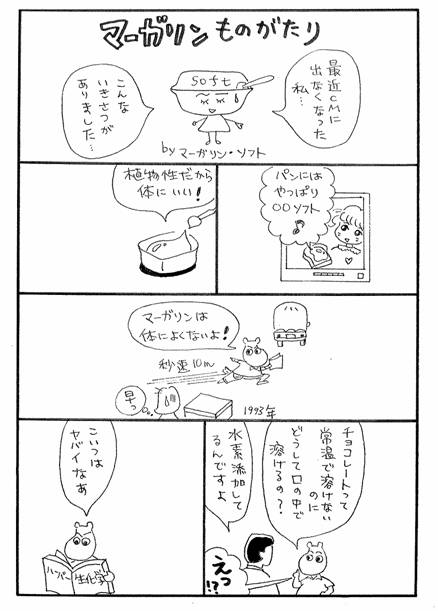 マーガリンものがたり
最近CMに
出なくなった
私…
soft
こんな
いきさつが
ありました…
by マーガリン・ソフト
パンには
やっぱり
○○ソフト
♪
植物性だから
体にいい!
マーガリンは
体によくないよ!
秒速10m
早っ
1993年
チョコレートって
常温で溶けない
のに
どうして口の中で
溶けるの?
水素添加して
るんですよ
えっ
!?
こいつは
ヤバイなあ
ハーパー
生化学